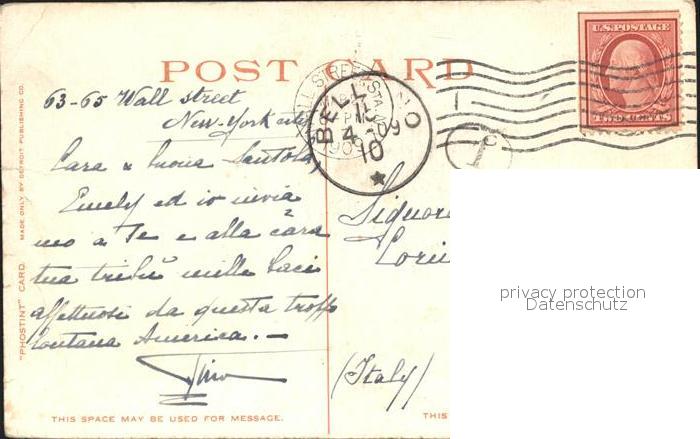 POST CARD
U.S. POSTAGE
TWO CENTS
BELLANO
15
4 - 09
10
63-65 Wall street
New-York city
Cara & buona Santola,
Emely ed io invia
mo a Te e alla cara
tua tribù mille baci
affettuosi da questa troppo
lontana America. —
Tino
Signora
(Italy)
privacy protection
Datenschutz
"PHOSTINT" CARD.
MADE ONLY BY DETROIT PUBLISHING CO.
THIS SPACE MAY BE USED FOR MESSAGE.
THIS